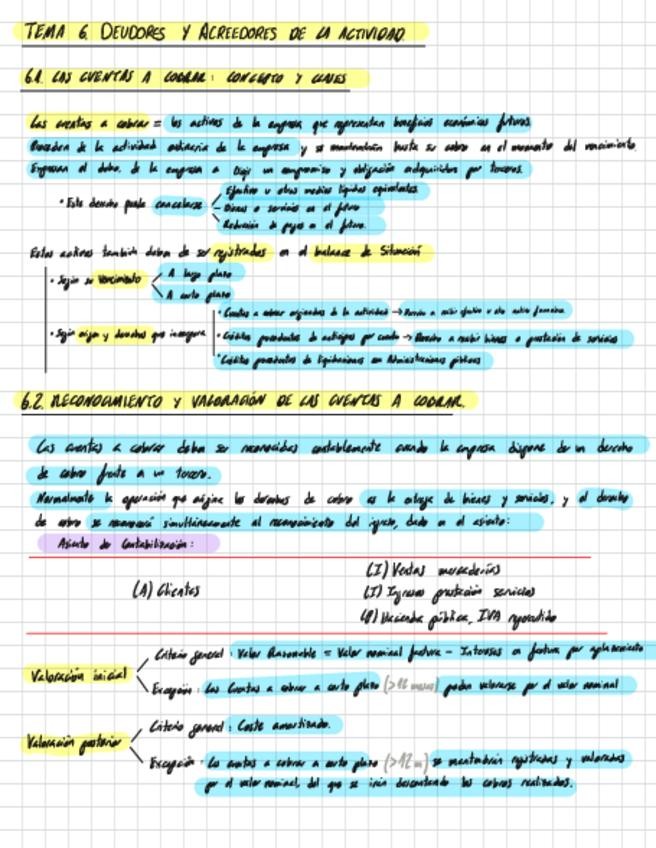 TEMA 6. DEUDORES Y ACREEDORES DE LA ACTIVIDAD.
6.1. LAS CUENTAS A COBRAR: CONCEPTO Y CLASES
Las cuentas a cobrar = los activos de la empresa que representan beneficios económicos futuros.
Proceden de la actividad ordinaria de la empresa y se mantendrán hasta su cobro en el momento del vencimiento.
Expresan el dcho. de la empresa a exigir un compromiso y obligación adquiridos por terceros.
Efectivo u otros medios líquidos equivalentes.
• Este derecho puede cancelarse
Bienes o servicios en el futuro
Reducción de pagos en el futuro.
Estos activos también deben de ser registrados en el balance de Situación
A largo plazo
• Según su vencimiento
A corto plazo
• Cuentas a cobrar originadas de la actividad → Derecho a recibir efectivo u otro activo financiero.
• Según origen y derechos que incorpora
• Créditos procedentes de anticipos por cuenta → Derecho a recibir bienes o prestación de servicios
• Créditos procedentes de liquidaciones con Administraciones públicas
6.2. RECONOCIMIENTO Y VALORACIÓN DE LAS CUENTAS A COBRAR.
Las cuentas a cobrar deben ser reconocidas contablemente cuando la empresa dispone de un derecho
de cobro frente a un tercero.
Normalmente la operación que origina los derechos de cobro es la entrega de bienes y servicios, y el derecho
de cobro se reconocerá simultáneamente al reconocimiento del ingreso, dado en el asiento:
Asiento de Contabilización:
(I) Ventas mercaderías
(A) Clientes
(I) Ingresos prestación servicios
(P) Hacienda pública, IVA repercutido
Criterio general: Valor Razonable = Valor nominal factura - Intereses en factura por aplazamiento
Valoración inicial
Excepción: Las Cuentas a cobrar a corto plazo (>12 meses) podan valorarse por el valor nominal
Criterio general: Coste amortizado.
Valoración posterior
Excepción: Las cuentas a cobrar a corto plazo (>12 m) se mantendrán registradas y valoradas
por el valor nominal, del que se irán descontando los cobros realizados.